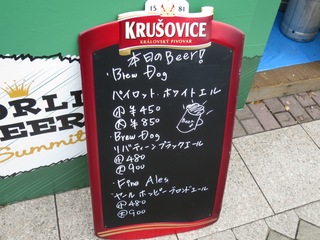 15 81
KRUŠOVICE
KRÁLOVSKÝ PIVOVAR
本日のBeer!
・Brew Dog
パイロット・ホワイトエール
小 ¥450
大 ¥850
・Brew Dog
リバティーンブラックエール
小 480
大 900
・Fine Ales
小 480
大 900
WORLD
BEER
Summit